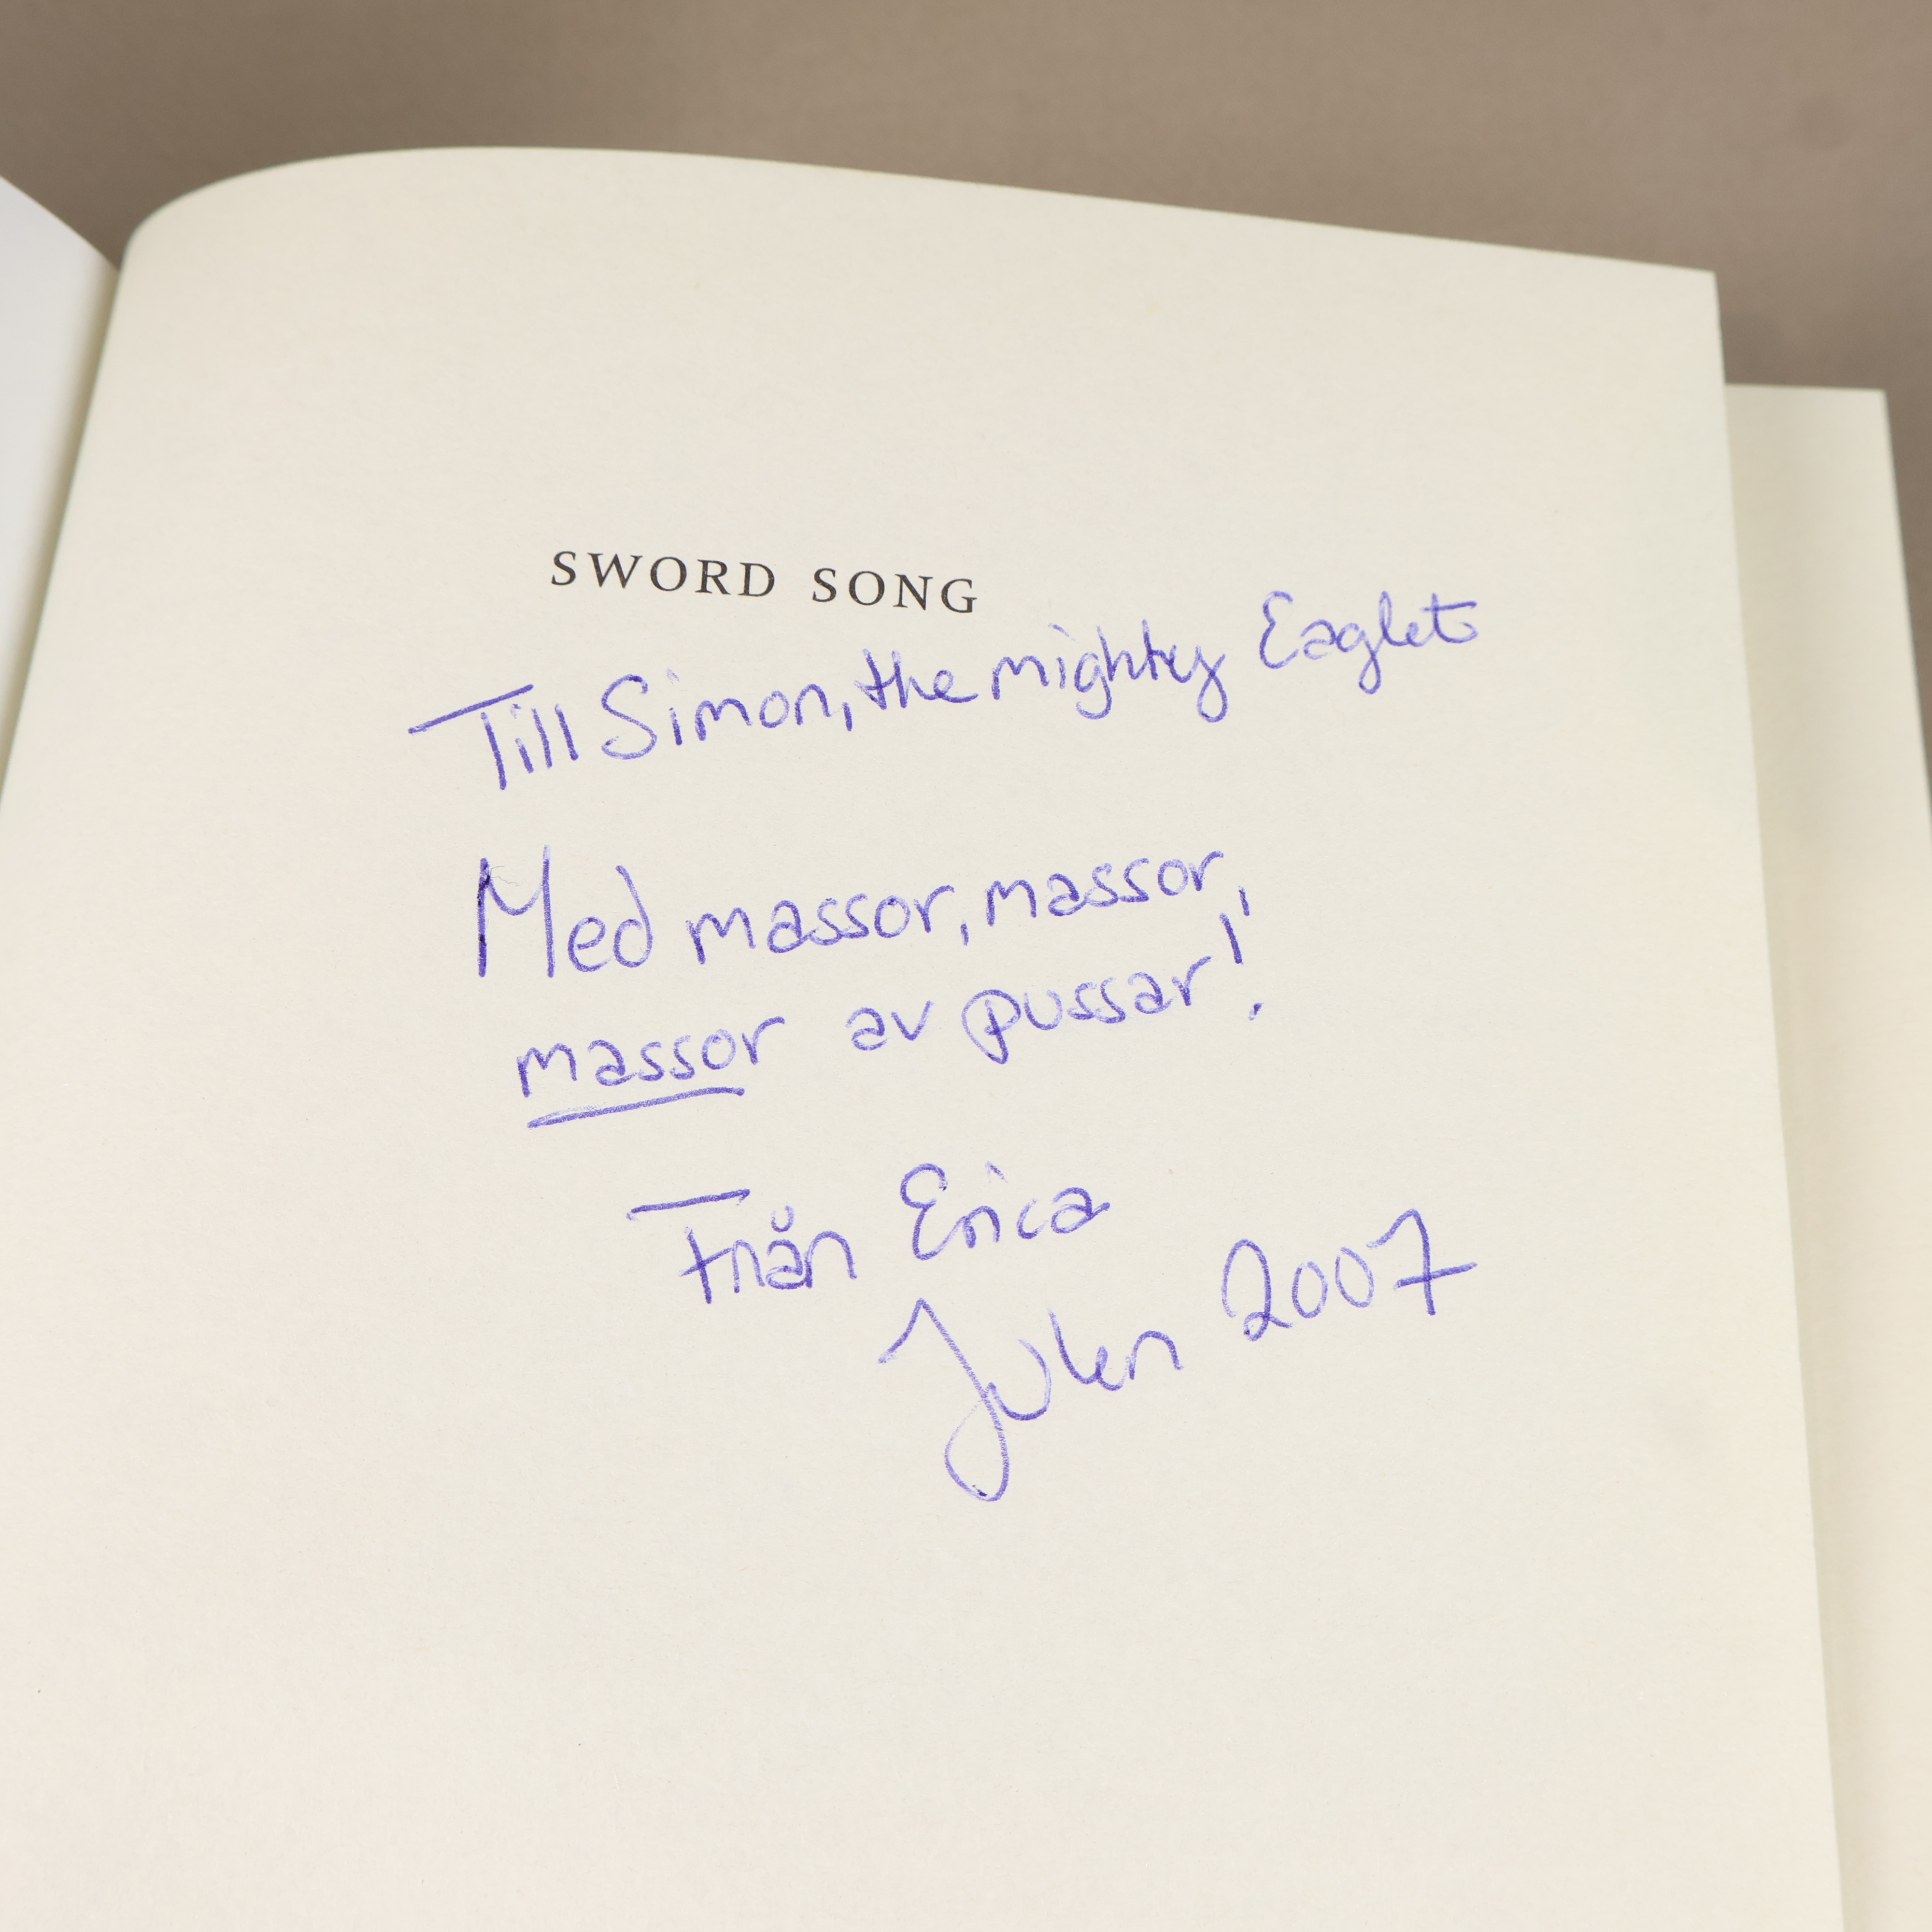 SWORD SONG
Till Simon, the mighty Eaglet
Med massor, massor,
massor av pussar!
Från Erica
Julen 2007